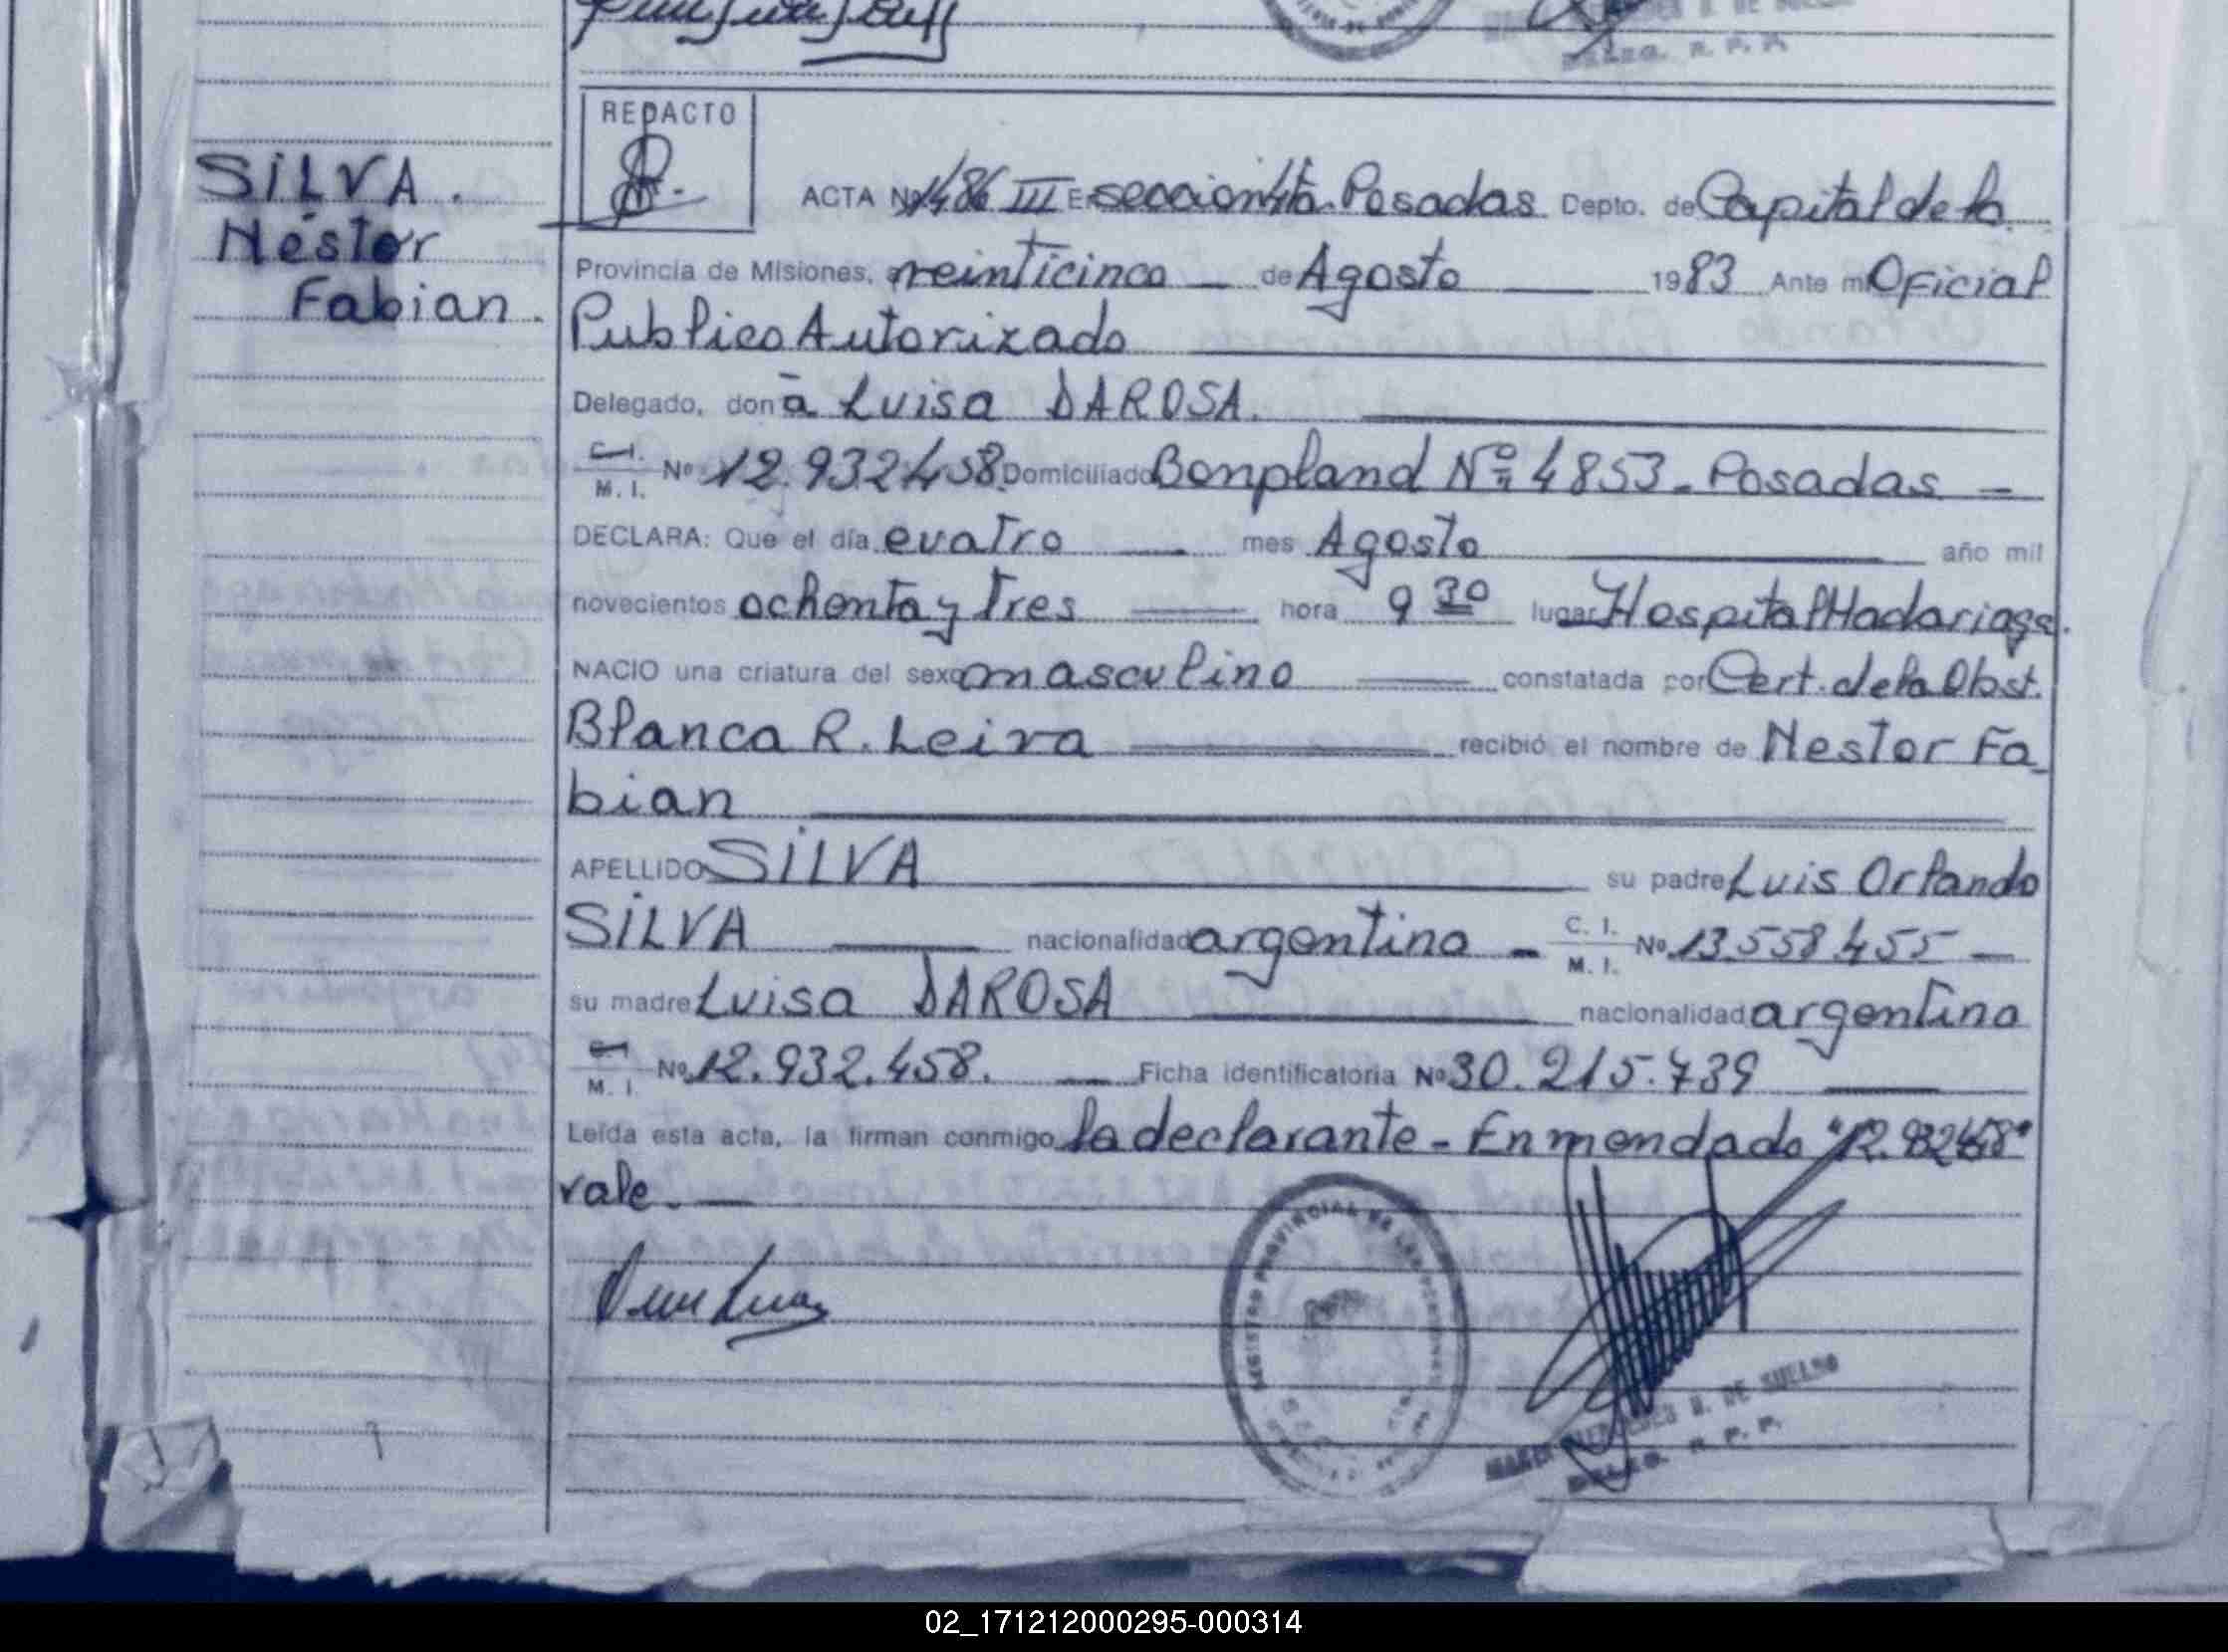 REDACTO
SILVA.
Néstor
Fabian.
ACTA Nº 1486 III En seccion 4ta. Posadas Depto. de Capital de la
Provincia de Misiones, a veinticinco de Agosto 1983 Ante mi Oficial
Publico Autorizado
Delegado, doña Luisa DAROSA.
C.I.
M.I. Nº 12.932.458. Domiciliado Bonpland Nº 4853 - Posadas -
DECLARA: Que el día cuatro mes Agosto año mil
novecientos ochenta y tres hora 9 30 lugar Hospital Madariaga.
NACIO una criatura del sexo masculino constatada por Cert. de la Obst.
Blanca R. Leiva recibió el nombre de Nestor Fa
bian
APELLIDO SILVA su padre Luis Orlando
SILVA nacionalidad argentina - C. I. M. I. Nº 13.558.455 -
su madre Luisa DAROSA nacionalidad argentina
M. I. Nº 12.932.458. Ficha identificatoria Nº 30.215.739
Leída esta acta, la firman conmigo la declarante - Enmendado "12.932.458"
vale. -
REGISTRO PROVINCIAL DE LAS PERSONAS
DE SUELDO
R. P. P.
02_171212000295-000314